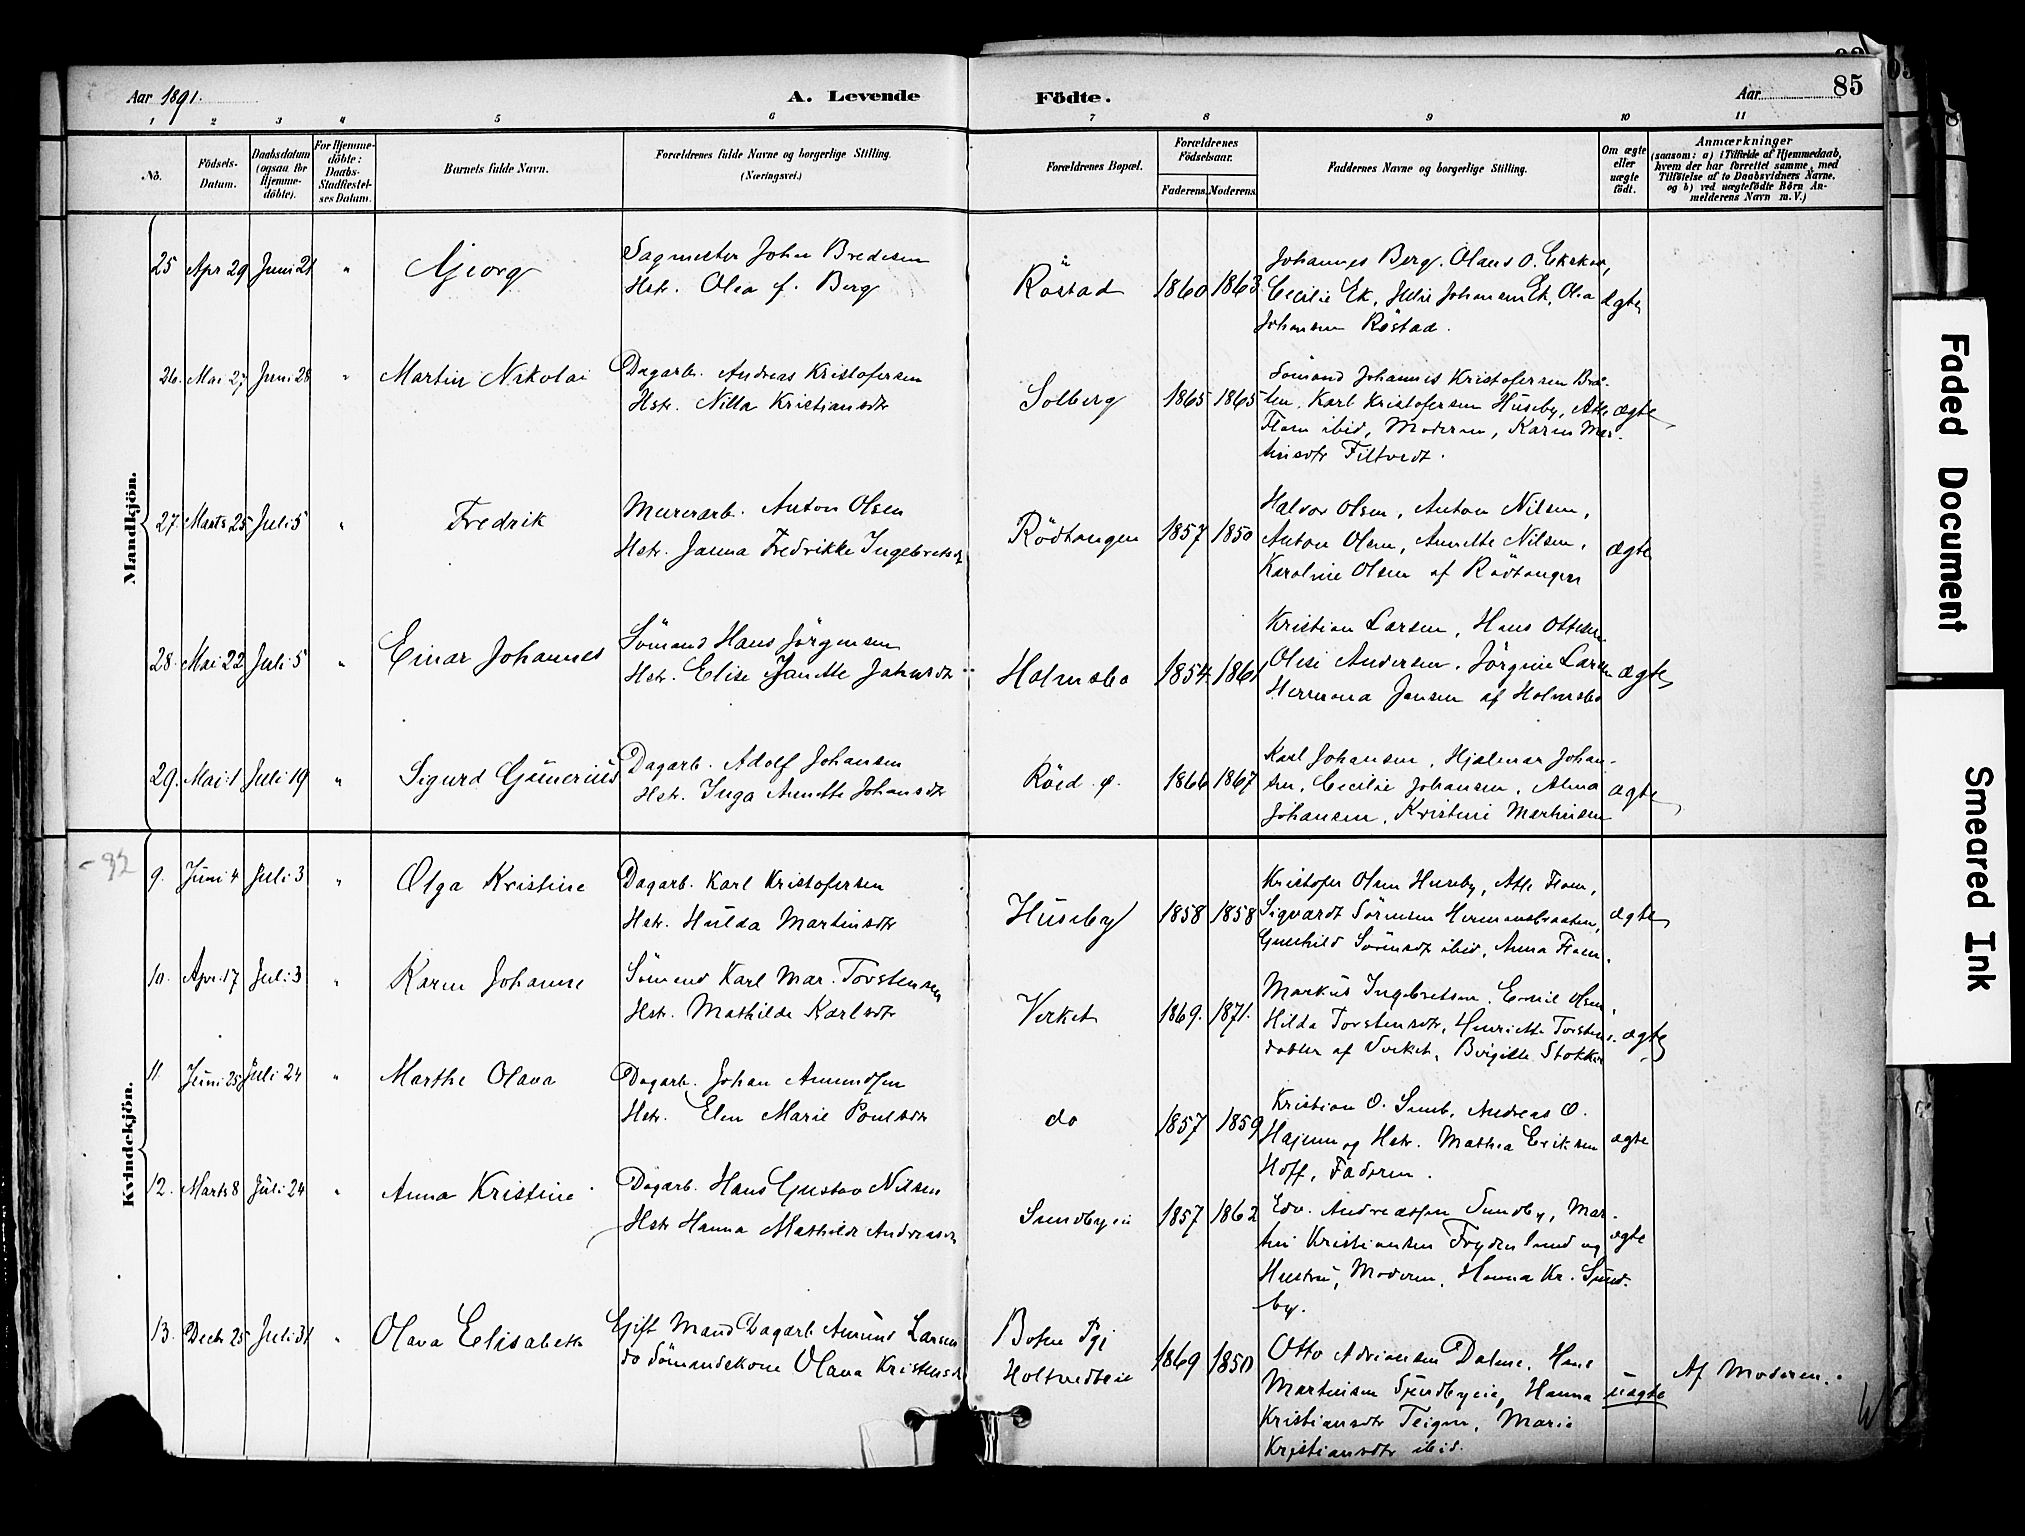 Aar 1891.
A. Levende
Födte.
Aar
85
1 2 3 4 5 6 7 8 9 10 11
No.
Födsels-
Datum.
Daabsdatum
(ogsaa for
Hjemme-
döbte).
For Hjemme-
döbte:
Daabs-
Stadfæstel-
ses Datum.
Barnets fulde Navn.
Forældrenes fulde Navne og borgerlige Stilling.
(Næringsvei.)
Forældrenes Bopæl.
Forældrenes
Födselsaar.
Faderens. Moderens.
Faddernes Navne og borgerlige Stilling.
Om ægte
eller
uægte
födt.
Anmærkninger
(saasom: a) i Tilfælde af Hjemmedaab,
hvem der har forrettet samme, med
Tilföielse af to Daabsvidners Navne,
og b) ved uægtefödte Börn An-
melderens Navn m. V.)
Mandkjön.
25 Apr 29 Juni 21 " Georg
Sagmester Johan Bredesen
Hstr. Olea f. Berg
Röstad 1860 1863
Johannes Berg. Olaus O.
Cecilie Ek, Helie Johansen Ek, Olea
Johansen Röstad.
ægte
26. Mai 27 Juni 28 " Martin Nikolai
Dagarb. Andreas Kristofersen
Hstr. Nilla Kristiansdtr
Solberg 1865 1865
Sömand Johannes Kristofersen Braa-
ten, Karl Kristofersen Huseby, Atle
Flom ibid, Moderen, Karen Mar-
tinsdtr Filtvedt.
ægte
27. Marts 25 Juli 5 " Fredrik
Murerarb. Anton Olsen
Hstr. Janna Fredrikke Ingebretsdt
Rödtangen 1857 1850
Halvor Olsen, Anton Nilsen,
Anton Olsen, Annette Nilsen,
Karoline Olsen af Rödtangen
ægte
28. Mai 22 Juli 5 " Einar Johannes
Sömand Hans Jörgensen
Hstr. Elise Janette Johnsdtr
Holmsbo 1854. 1861
Kristian Larsen, Hans Ottesen
Olise Andersen, Jörgine Larsen
Hermana Jensen af Holmsbo
ægte
29. Mai 1 Juli 19 " Sigurd Gunerius
Dagarb. Adolf Johansen
Hstr. Inga Annette Johansdtr
Röed ö. 1866 1867
Karl Johansen, Hjalmar Johan-
sen, Cecilie Johansen, Alma
Johansen, Kristine Martinsen
ægte
Kvindekjön.
-92
9. Juni 4 Juli 3 " Olga Kristine
Dagarb. Karl Kristofersen
Hstr. Hulda Martinsdtr
Huseby 1858 1858
Kristofer Olsen Huseby, Atle Flom,
Sigvardt Sörensen Hermansbraaten,
Gunhild Sörensdt ibid, Anna Flom.
ægte
10. Apr. 17 Juli 3 " Karen Johanne
Sömand Karl Mar. Torstensen
Hstr. Mathilde Karlsdtr
Verket 1869. 1871.
Markus Ingebretsen, Emil Olsen,
Hilda Torstensdtr, Henriette Torstens-
datter af Verket, Birgitte Stokker
ægte
11 Juni 25 Juli 24 " Marthe Olava
Dagarb. Johan Amundsen
Hstr. Elen Marie Poulsdtr
do 1857 1859
Kristian O. Sund, Andreas O.
Hajum og Hstr. Mathea Eriksen
Hoff, Faderen.
ægte
12. Marts 8 Juli 24 " Anna Kristine
Dagarb. Hans Gustav Nilsen
Hstr Hanna Mathilde Andreasdt
Sundbyeie 1857 1862
Edv. Andreassen Sundby, Mar-
tin Kristiansen Frydenlund og
Hustru, Moderen, Hanna Kr. Sund-
by.
ægte
13. Decbr 25 Juli 31 " Olava Elisabeth
Gift Mand Dagarb Amund Larsen
do Sömandskone Olava Kristensdt
Botne Pgj
Holtvedteie 1869 1850
Otto Adriansen Dalene, Hans
Martinsen Sundbyeie, Hanna
Kristiansdtr Teigen, Marie
Kristiansdtr ibid.
uægte
Af Moderen.
Faded Document
Smeared Ink